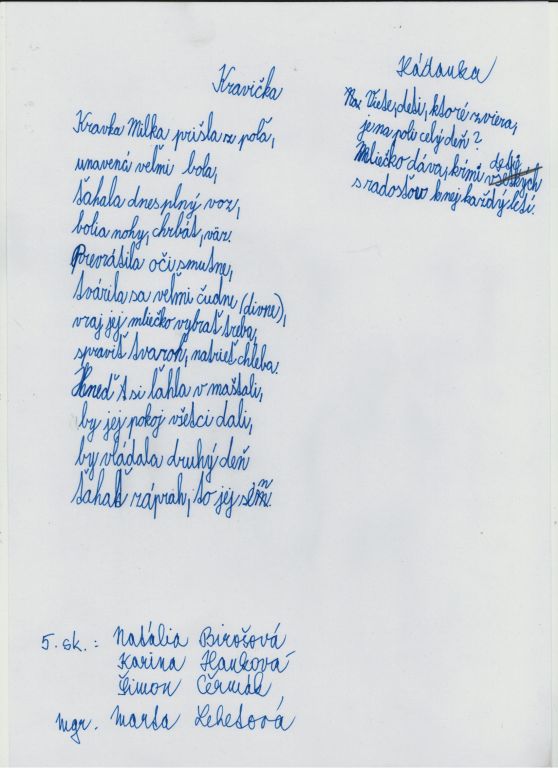 Kravička
Kravka Milka prišla z poľa,
unavená veľmi bola,
ťahala dnes plný voz,
bolia nohy, chrbát, väz.
Prevrátila oči smutne,
tvárila sa veľmi čudne (divne),
vraj jej mliečko vybrať treba,
spraviť tvaroh, natrieť chleba.
Hneď si ľahla v maštali,
by jej pokoj všetci dali,
by vládala druhý deň
ťahať záprah, to jej sen.
Hádanka
Viete, deti, ktoré zviera,
je na poli celý deň?
Mliečko dáva, kŕmi detí všetkých
s radosťou k nej každý letí.
5. sk.: Natália Birošová
Karina Hanková
Šimon Čermák,
Mgr. Marta Lehetová